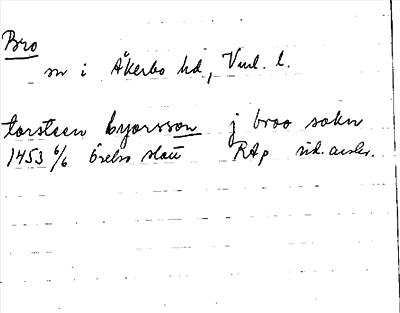 Bro
sn i Åkerbo hd, Vml. l.
torsteen byorsson j broo sokn
1453 6/6 örebro slott RAp sid. avskr.